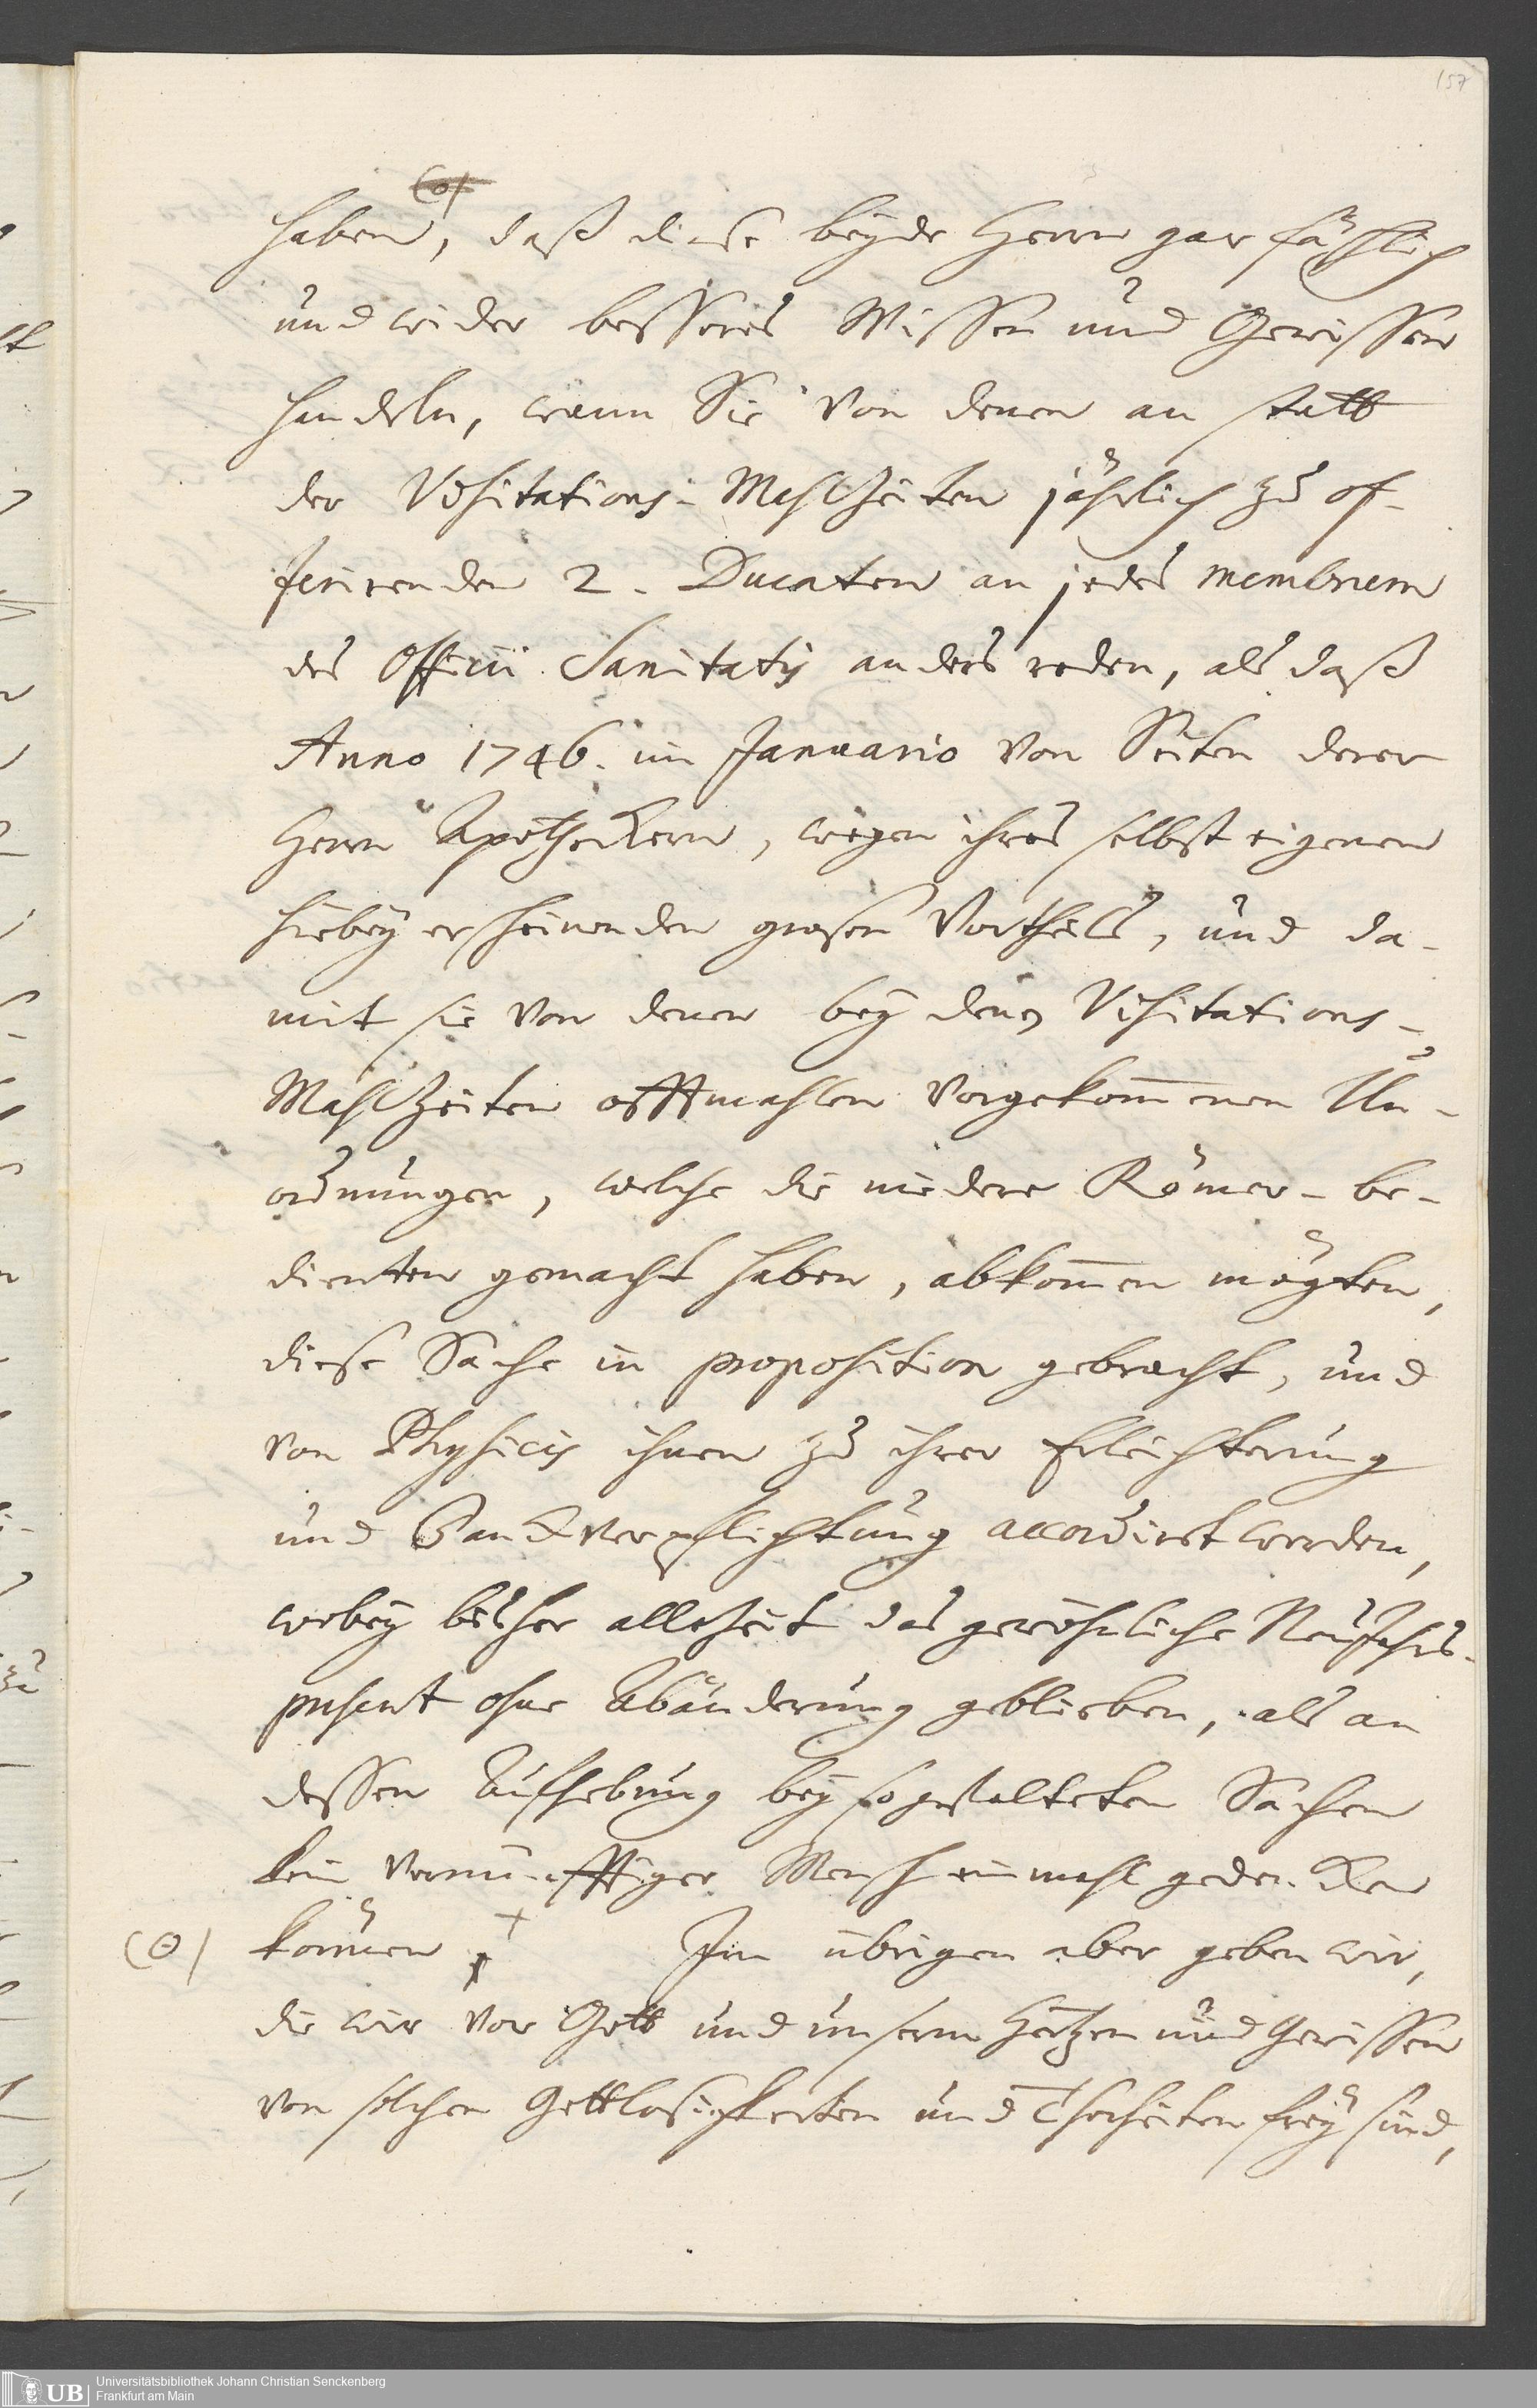 157
(o)
haben, daß diese beyde Herrn gar fälschlich
und wider besseres Wissen und Gewissen
handeln, wann Sie von denen an statt
der Visitations-Mahlzeiten jährlich zu of-
ferirenden 2. Ducaten an jedes membrum
des Officii Sanitatis anders reden, als daß
Anno 1746. im Januario von Seiten derer
Herrn Apotheckern, wegen ihres selbst eigenen
hiebey erscheinenden grosen Vortheils, und da-
mit sie von denen bey denen Visitations-
Mahlzeiten offtmahlen vorgekom̄enen Un-
ordnungen, welche die niedere Römer-be-
dienten gemacht haben, abkom̄en mögten,
diese Sache in proposition gebracht, und
von Physicis ihnen zu ihrer Erleichterung
und Danckverpflichtung accordirt worden,
wobey bisher allezeit das gewöhnliche Neujahrs-
present ohne Abänderung geblieben, als an
dessen Aufhebung bey so gestalteten Sachen
kein vernünfftiger Mensch einmahl gedencken
(Θ) können + Im übrigen aber geben wir,
die wir vor Gott und unserm Hertzen und Gewissen
von solchen Gottlosigkeiten und Thorheiten frey sind,
UB Universitätsbibliothek Johann Christian Senckenberg
Frankfurt am Main